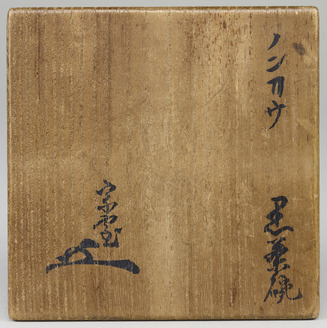 ノンカウ
黒茶碗
宗室